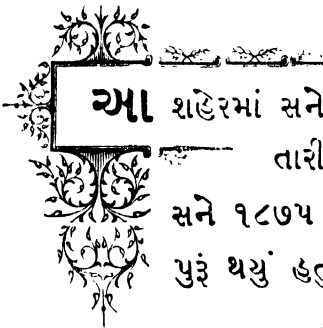 આ શહેરમાં સને
તારી
સને ૧૮૭૫
પુરૂં થયું હતું